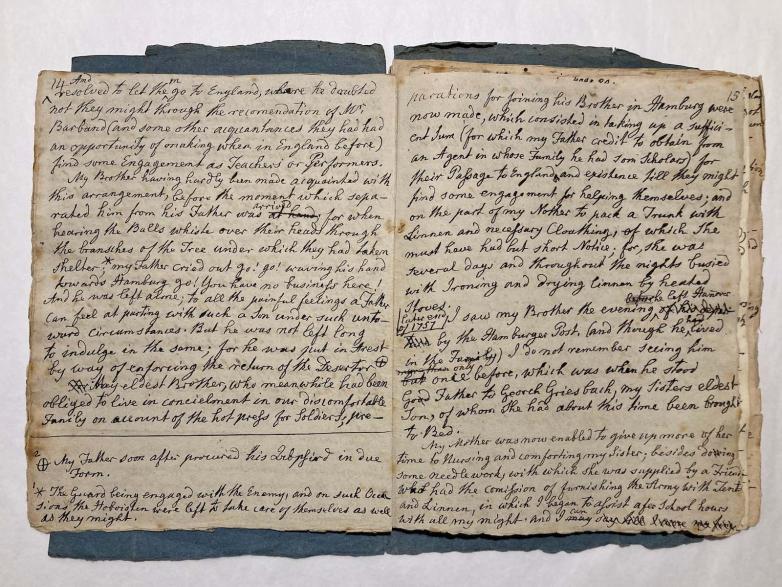 14 And
resolved to let them go to England, where he doubted
not they might through the recomendation of Mr
Barband (and some other acquantances they had had
an opportunity of making when in England before)
find some Engagement as Teachers or Performers.
My Brother having hardly been made acquainted with
this arrangement, before the moment which sepa-
rated him from his Father was arrived at hand; for when
hearing the Balls whistle over their heads through
the branshes of the Tree under which they had taken
Shelter;* my Father cried out go! go! waving his hand
towards Hamburg go! You have no business here!
And he was left alone, to all the painful feelings a father
can feel at parting with such a Son under such unto-
ward circumstances. But he was not left long
to indulge in the same; for he was put in Arest
by way of enforcing the return of the Desertor ⊕
My eldest Brother, who meanwhile had been
obliged to live in concielment in our discomfortable
Family on account of the hot press for Soldiers; pre-
2
⊕ My Father soon after procured his in due
Form.
1
* The Guard being engaged with the Enemy, and on such Occa
sions the Hoboisten were left to take care of themselves as well
as they might.
15
parations for joining his Brother in Hamburg were
now made, which consisted in taking up a suffici-
ent Sum (for which my Father credit to obtain from
an Agent in whose Family he had son Scholars) for
their Passage to England and existence till they might
find some engagement for helping themselves; and
on the part of my Mother to pack a Trunk with
Linnen and necessary Cloathing, of which She
must have had but short Notice, for, she was
several days and throughout the nights busied
with Ironing and drying Linnen by heated
Stoves.
before left Hanover
of 1757 I saw my Brother the evening
by the Hamburger Post, (and though he lived
in the Family) I do not remember seeing him
more than only
but once before, which was when he stood
God Father to Georch Griesbach, my Sisters eldest
Son; of whom She had about this time been brought
to Bed.
My Mother was now enabled to give up more of her
time to Nursing and comforting my Sister; besides dowing
some needlework, with which she was supplied by a Friend
who had the comission of furnishing the Army with Tent
and Linnen, in which I began to assist after School hours
with all my might. And I can say